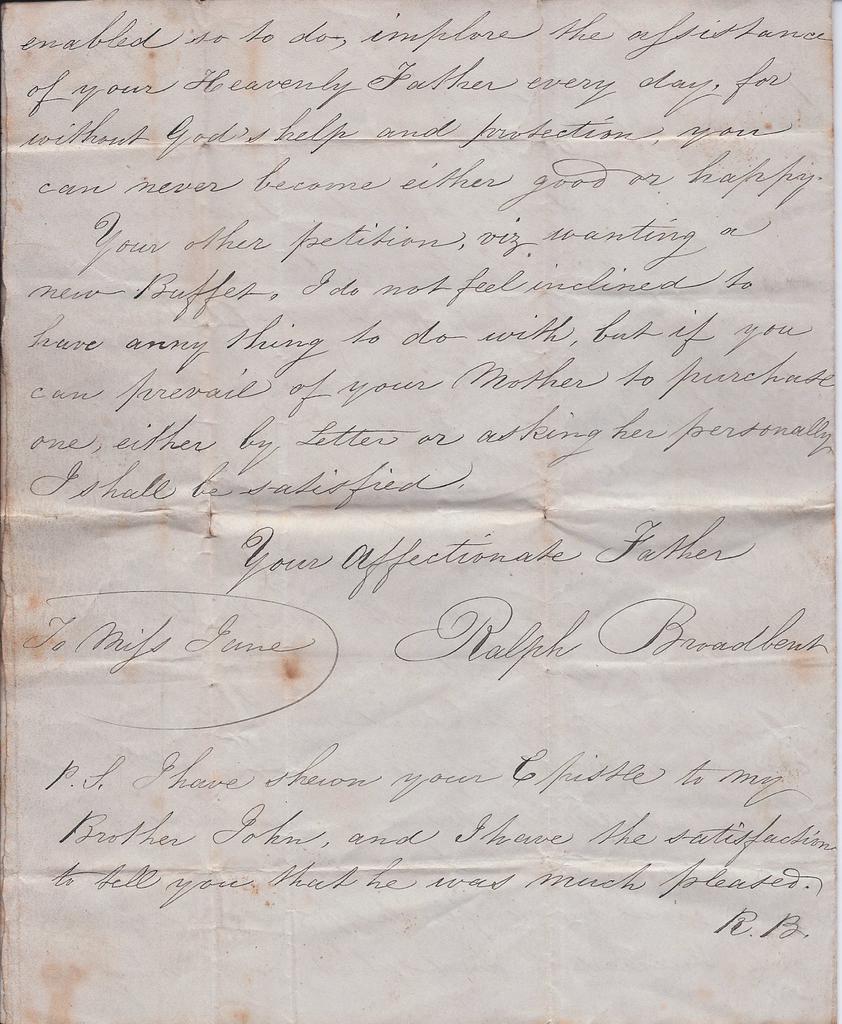 enabled so to do, implore the assistance
of your Heavenly Father every day, for
without God's help and protection, you
can never become either good or happy.
Your other petition, viz wanting a
new Buffet, I do not feel inclined to
have anny thing to do with, but if you
can prevail of your Mother to purchase
one, either by Letter or asking her personally
I shall be satisfied.
Your Affectionate Father
To Miss Jane Ralph Broadbent
P.S. I have shewn your Epistle to my
Brother John, and I have the satisfaction
to tell you that he was much pleased.
R.B.